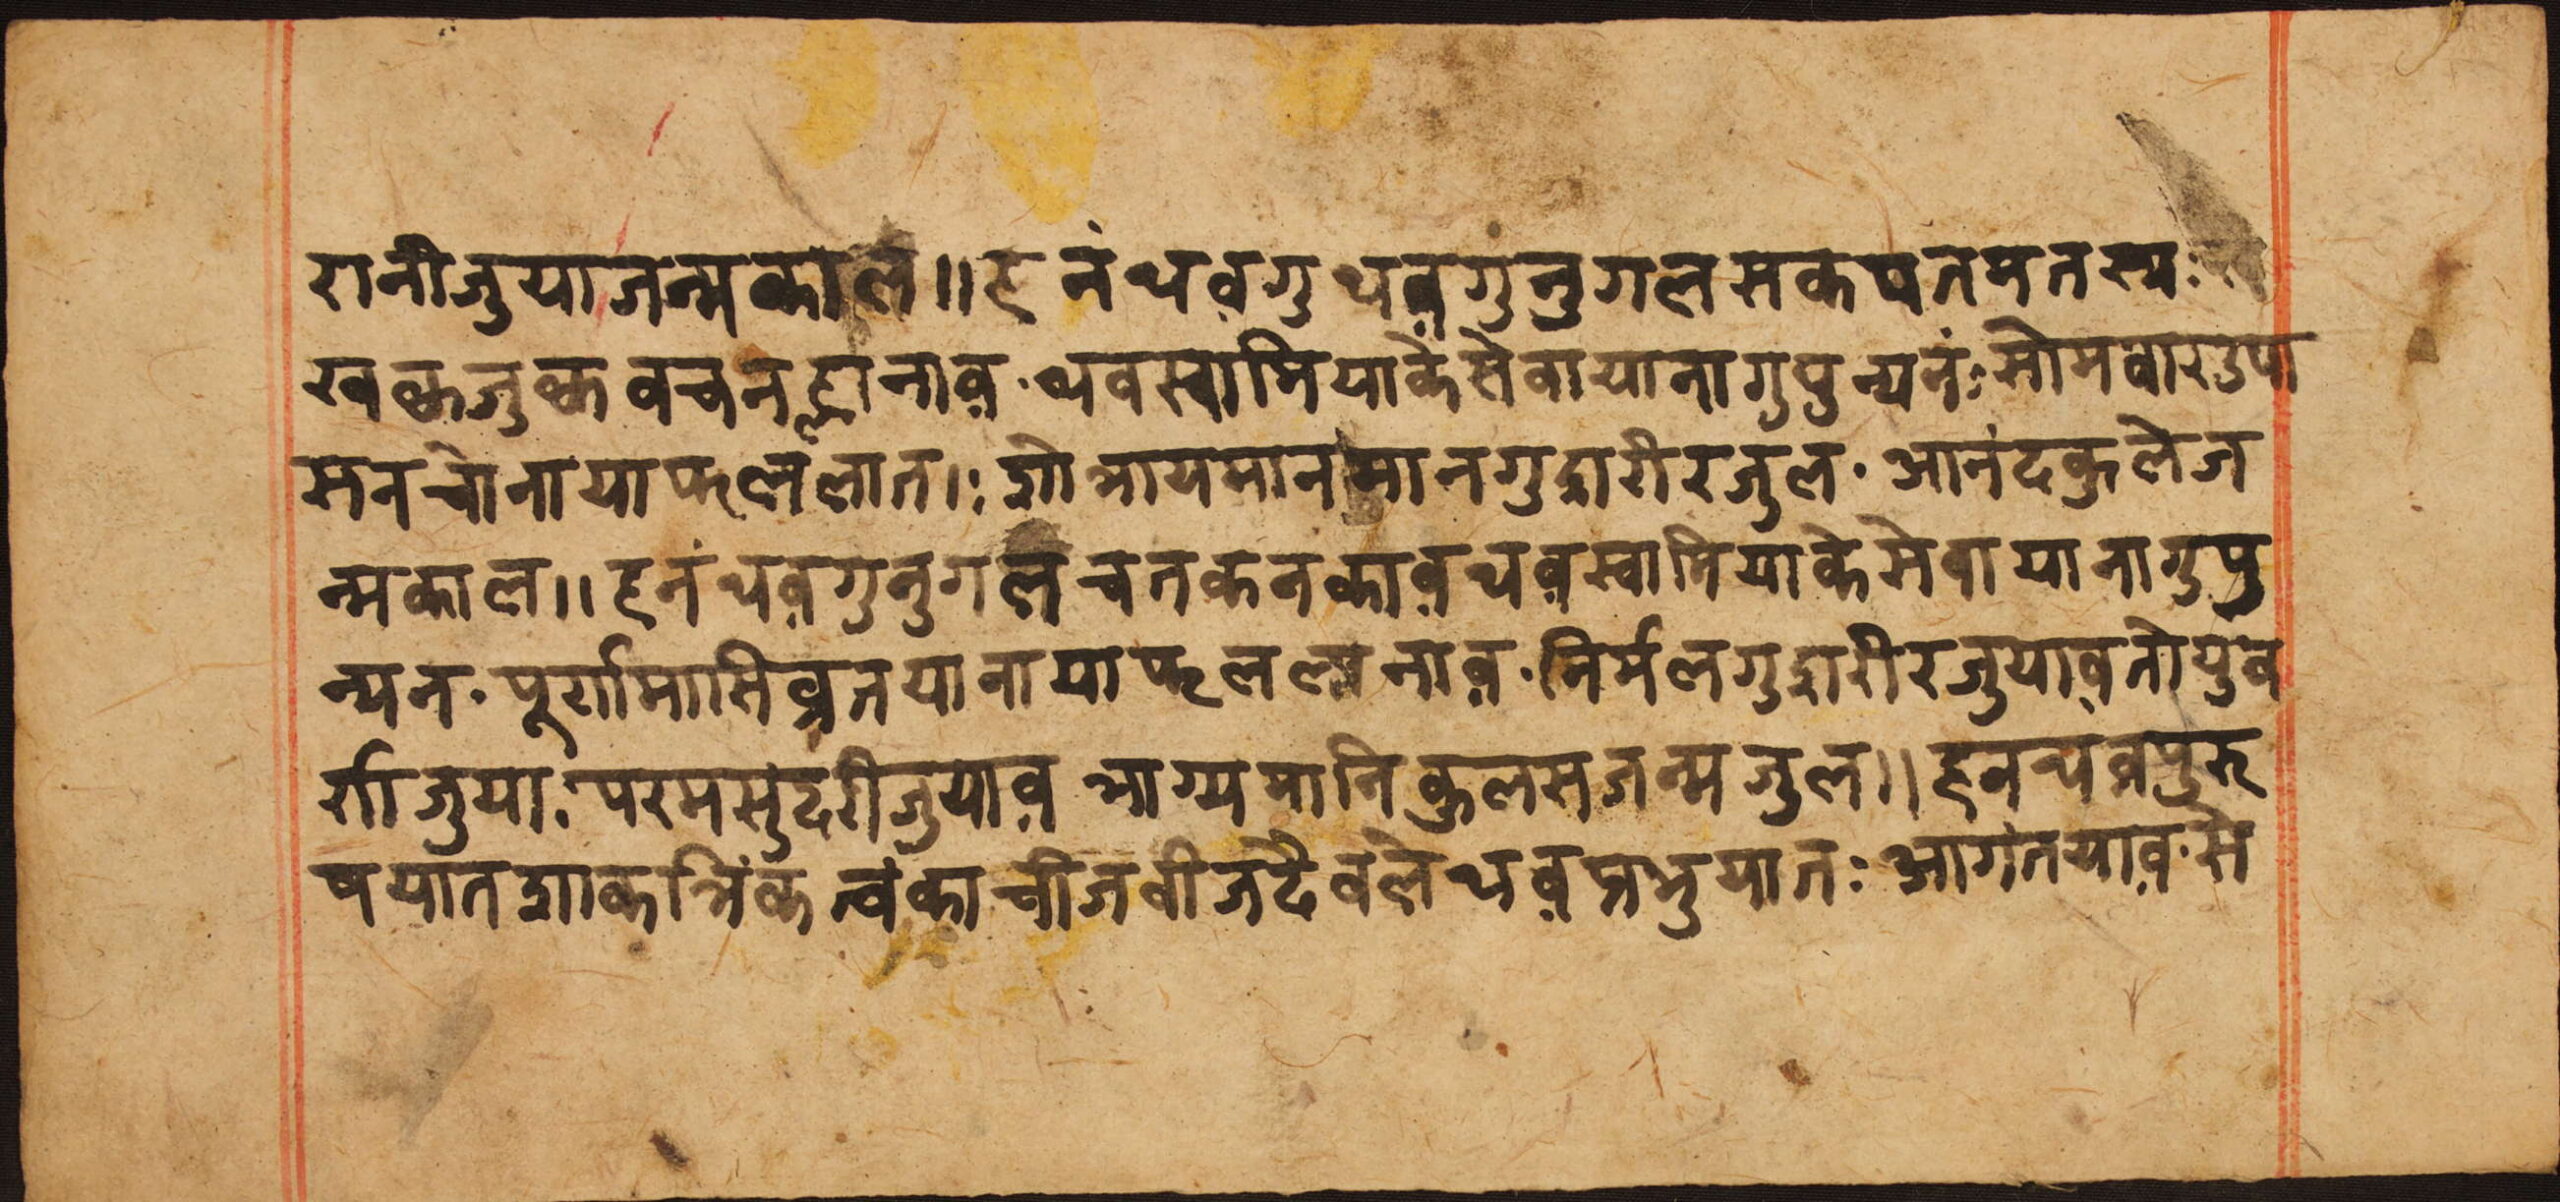 रानीजुयाजन्मकाल॥हनंथव़गुथव़गुनुगलसकषतमतस्यः
खक्वजुक्ववचनह्लानाव़·थवस्वामियाकेसेवायानागुपुन्यनं:सोमवारउपा
सनचोनायाफललात।:शोभायमानमानगुशरीरजुल·आनंदकुलेज
न्मकाल॥हनंथव़गुनुगलचतकनकाव़थव़स्वामियाकेसेवायानागुपु
न्यन·पूर्णमासिव्रतयानायाफललानाव़·निर्मलगुशरीरजुयाव़तोयुव
र्णजुया:परमसुंदरीजुयाव़भाग्यमानिकुलसजन्मजुल॥हनथव़पुरू
षयातशाकभिंकत्वंकाचीजवीजदैवलेथव़प्रभुयात:आगंतयाव़·से